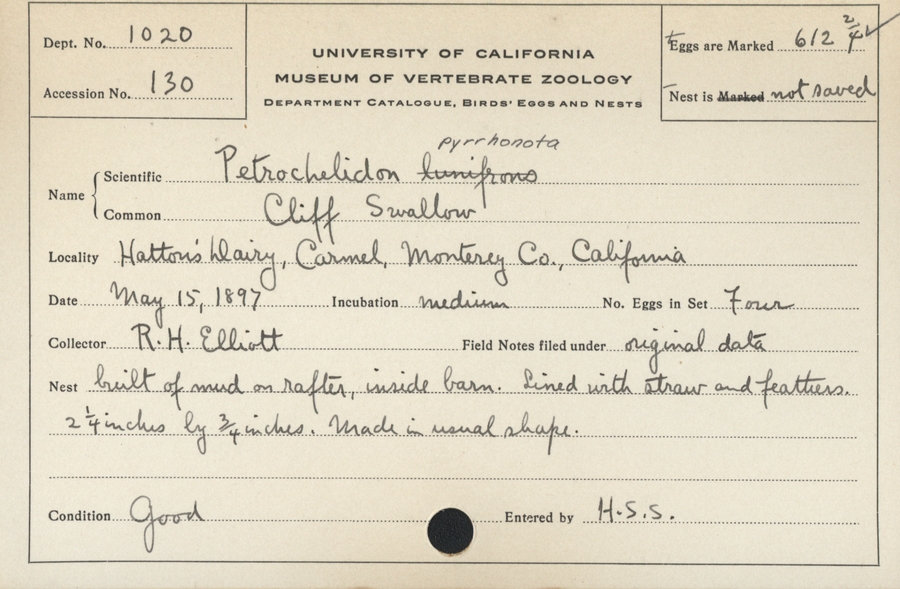 Dept. No. 1020
Accession No. 130
UNIVERSITY OF CALIFORNIA
MUSEUM OF VERTEBRATE ZOOLOGY
DEPARTMENT CATALOGUE, BIRDS' EGGS AND NESTS
Eggs are Marked 612 2/4 ✓
Nest is Marked not saved
pyrrhonota
Name Scientific Petrochelidon lunifrons
Common Cliff Swallow
Locality Hatton's Dairy, Carmel, Monterey Co., California
Date May 15, 1897 Incubation medium No. Eggs in Set Four
Collector R. H. Elliott Field Notes filed under original data
Nest built of mud on rafter, inside barn. Lined with straw and feathers.
2 1/4 inches by 3/4 inches. Made in usual shape.
Condition Good Entered by H.S.S.